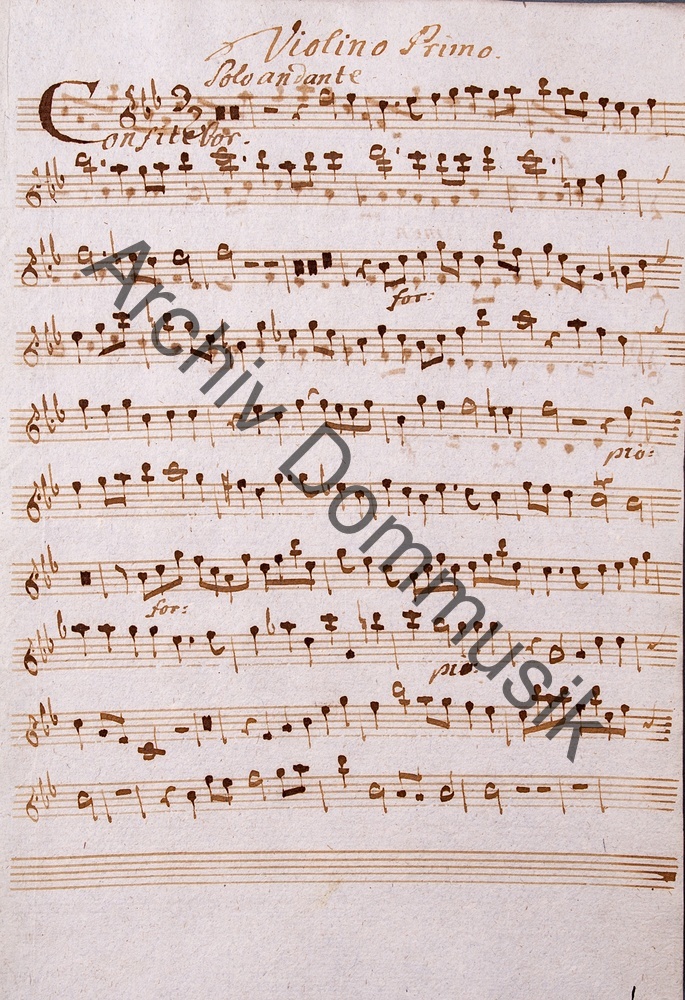 Violino Primo.
Solo andante
Confitebor.
for:
pio:
for:
pio:
Archiv Dommusik